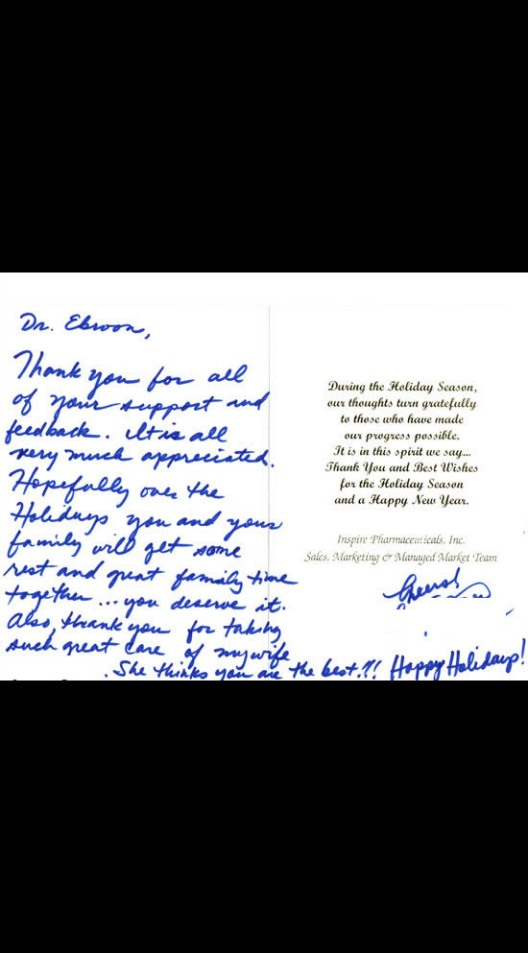 Dr. Ebroon,
Thank you for all
of your support and
feedback. It is all
very much appreciated.
Hopefully over the
Holidays you and your
family will get some
rest and great family time
together...you deserve it.
Also, thank you for taking
such great care of my wife
. She thinks you are the best.!! Happy Holidays!
During the Holiday Season,
our thoughts turn gratefully
to those who have made
our progress possible.
It is in this spirit we say...
Thank You and Best Wishes
for the Holiday Season
and a Happy New Year.
Inspire Pharmaceuticals, Inc.
Sales, Marketing & Managed Market Team
Cheers!